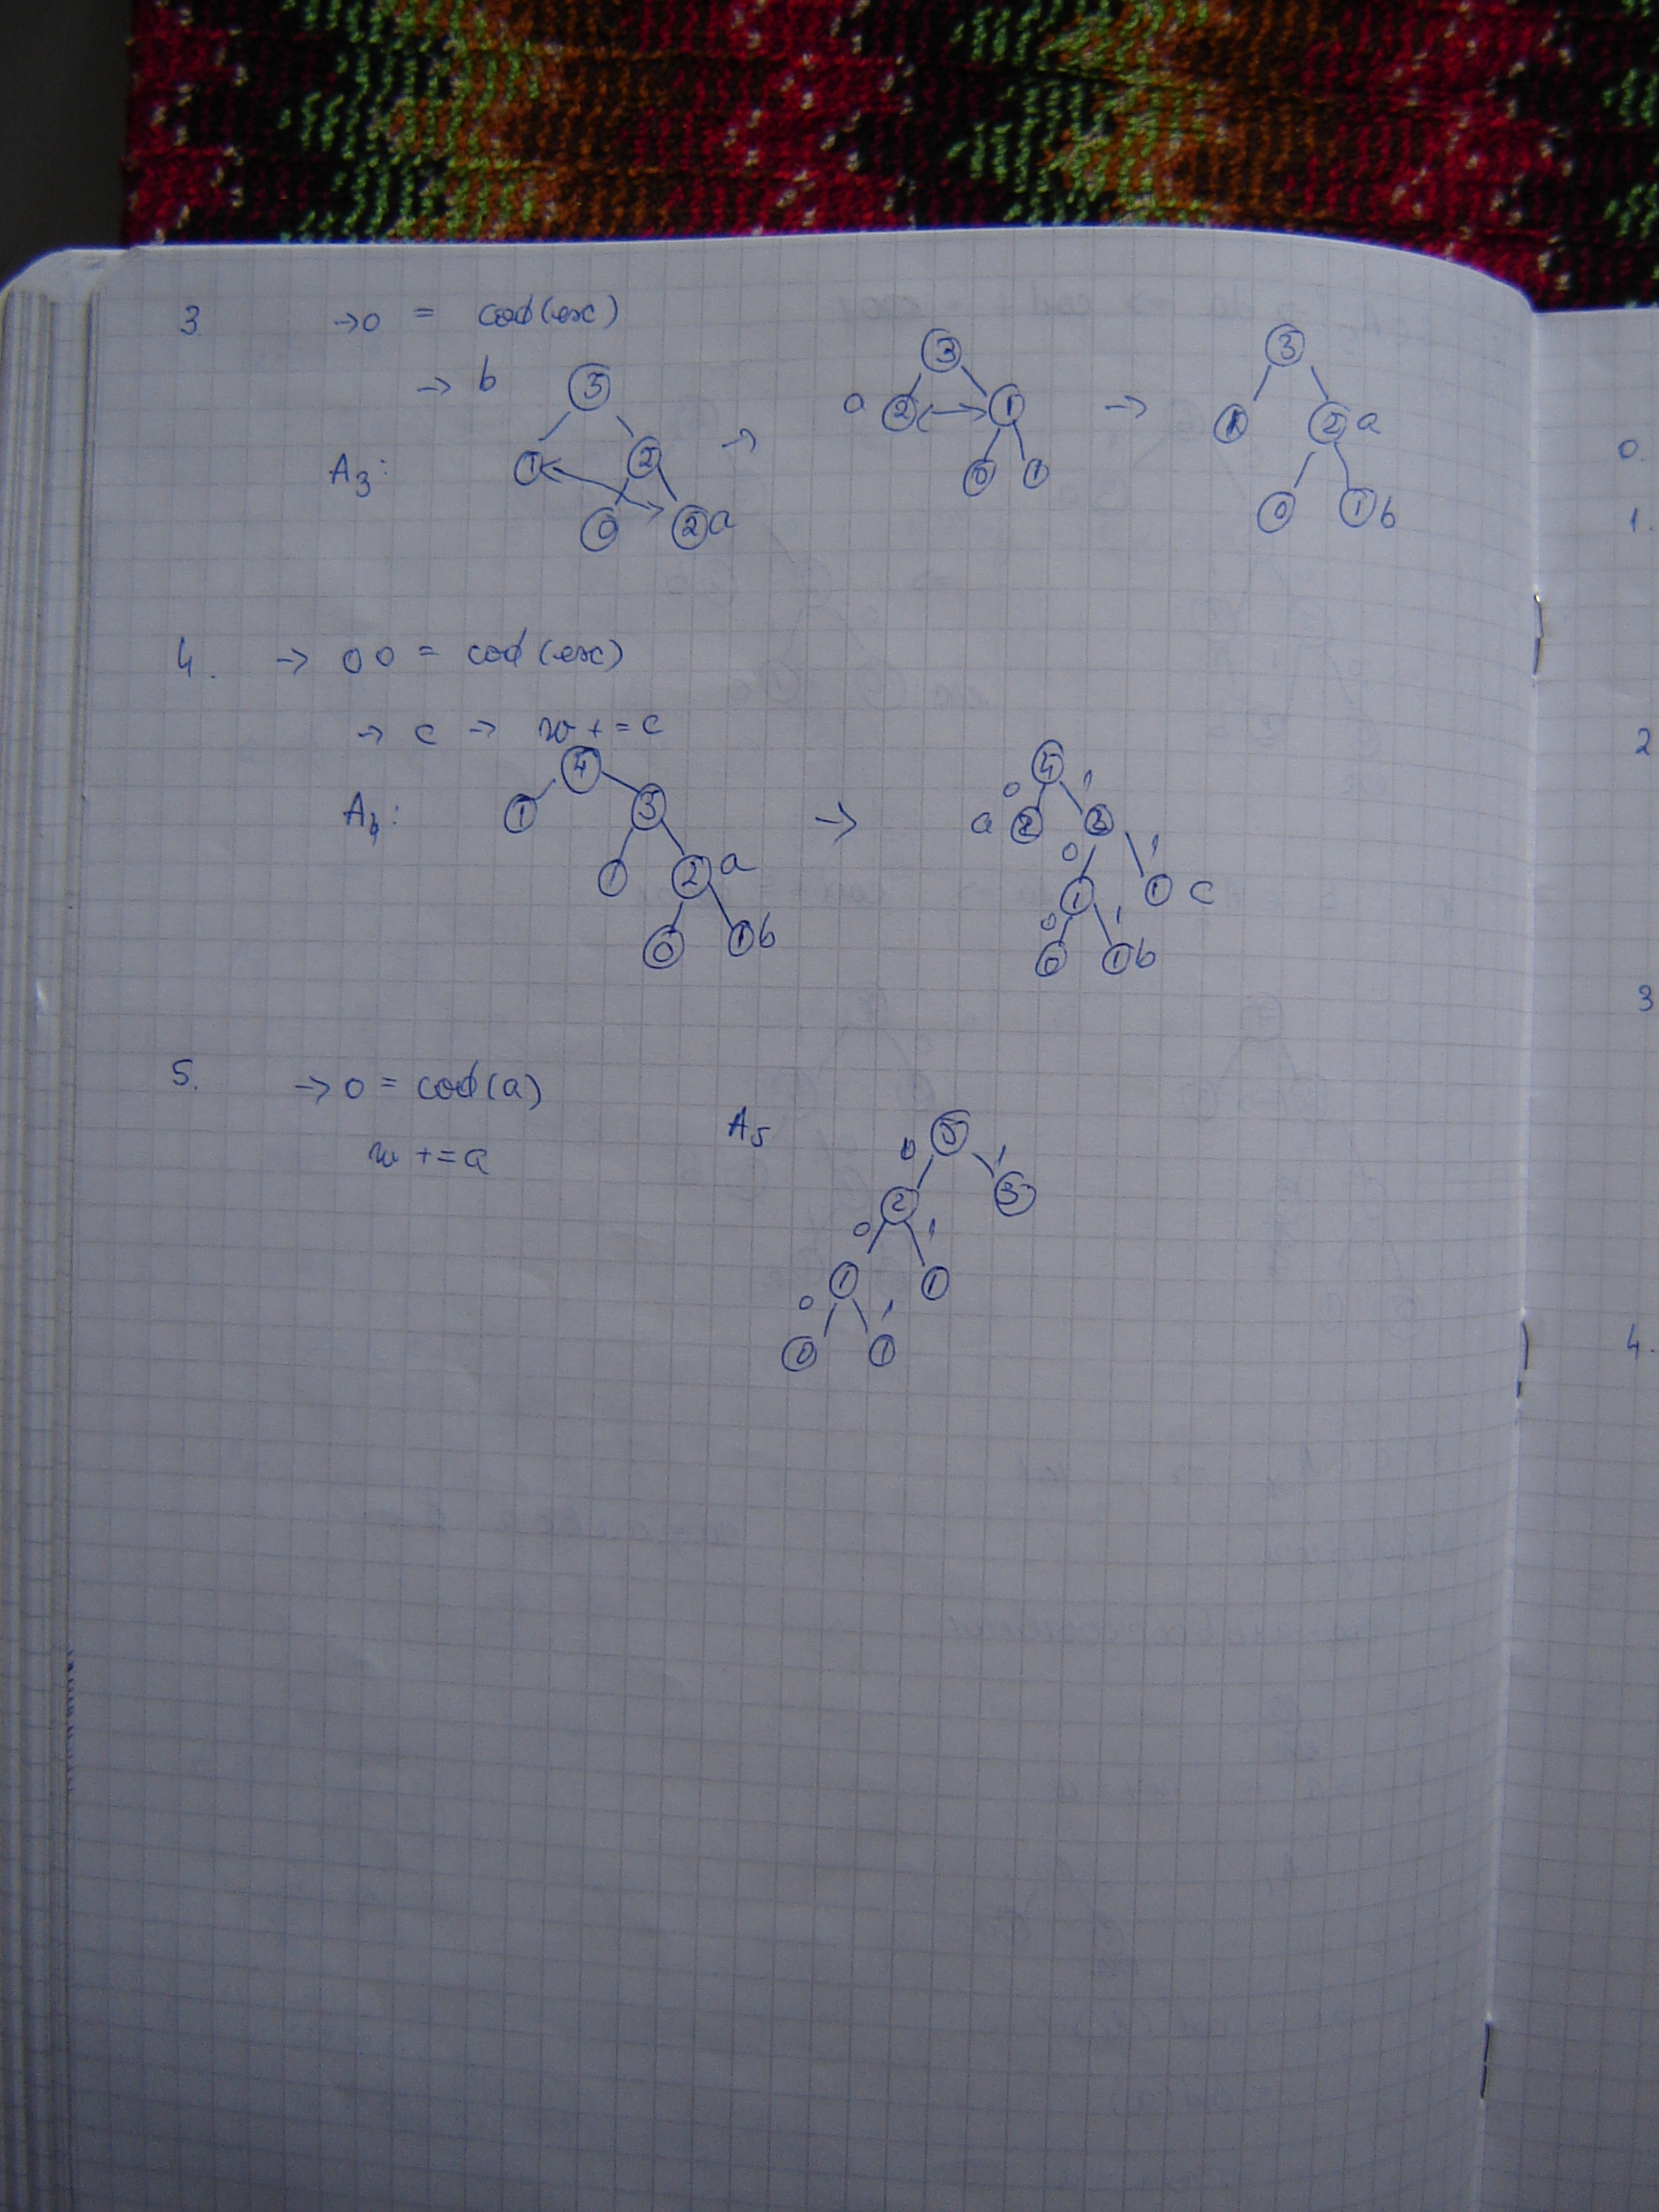 3. → 0 = cod(esc)
→ b
A3:
3
1 2
0 2 a
→
3
a 2 1
0 1
→
3
1 2 a
0 1 b
4. → 00 = cod(esc)
→ c → w += c
A4:
4
1 3
1 2 a
0 1 b
→
4
0 1
a 2 2
0 1
1 1 c
0 1
0 1 b
5. → 0 = cod(a)
w += a
A5
5
0 1
2 3
0 1
1 1
0 1
0 1
0.
1.
2
3
4.